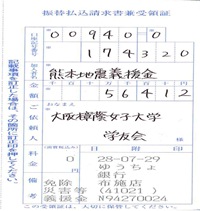 振替払込請求書兼受領証
口座記号番号
00940 0
174320
加入者名
熊本地震義援金
金額
56412
ご依頼人
おなまえ
大阪樟蔭女子大学
学友会
料金
0
日附印
28-07-29
ゆうちょ
銀行
備考
免除 布施店
災害等 (41021)
義援金 N94270024
この受領証は、大切に保管してください。
記載事項を訂正した場合は、その箇所に訂正印を押してください。